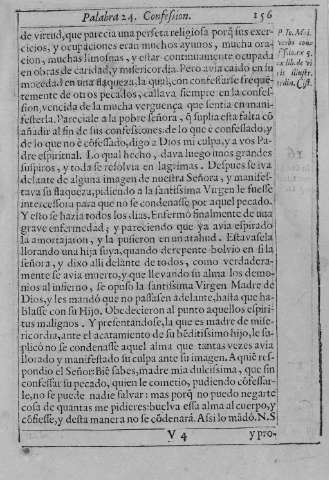 Palabra 24. Confession. 156
de virtud, que parecia una perfeta religiosa porq̃ sus exer-
cicios, y ocupaciones eran muchos ayunos, mucha ora-
cion, muchas limosnas, y estar continuamente ocupada
en obras de caridad, y misericordia. Pero avia caido en su
mocedad en una flaqueza, la qual, con confessarse frequẽ-
temente de otros pecados, callava siempre en la confes-
sion, vencida de la mucha verguença que sentia en mani-
festarla. Pareciale a la pobre señora, q̃ suplia esta falta cõ
añadir al fin de sus confessiones: de lo que è confessado, y
de lo que no è cõfessado, digo a Dios mi culpa, y a vos Pa-
dre espiritual. Lo qual hecho, dava luego unos grandes
suspiros, y toda se resolvia en lagrimas. Despues se iva
delante de alguna imagen de nuestra Señora, y manifes-
tava su flaqueza, pidiendo a la santissima Virgen le fuesse
intercessora para que no se condenasse por aquel pecado.
Y esto se hazia todos los dias. Enfermò finalmente de una
grave enfermedad; y pareciendo que ya avia espirado
la amortajaron, y la pusieron en un atahud. Estavasela
llorando una hija suya, quando derepente bolvio en si la
señora, y dixo alli delante de todos, como verdadera-
mente se avia muerto, y que llevando su alma los demo-
nios al infierno, se opuso la santissima Virgen Madre de
Dios, y les mandó que no passassen adelante, hasta que ha-
blasse con su Hijo. Obedecieron al punto aquellos espiri-
tus malignos. Y presentandose, la que es madre de mise-
ricordia, ante el acatamiento de su bẽditissimo hijo, le su-
plicò no se condenasse aquel alma que tantas vezes avia
llorado y manifestado su culpa ante su imagen. A quiẽ res-
pondio el Señor: Biẽ sabes, madre mia dulcissima, que sin
confessar su pecado, quien le cometio, pudiendo cõfessar-
le, no se puede nadie salvar: mas porq̃ no puedo negarte
cosa de quantas me pidieres: buelva essa alma al cuerpo, y
cõfiesse, y desta manera no se cõdenarà. Assi lo mãdò. N.S
V 4 y pro-
P. Io. Mai.
verbo con-
fessio. ex 5.
ex lib. de vi
ris illustr.
ordin. Cist.